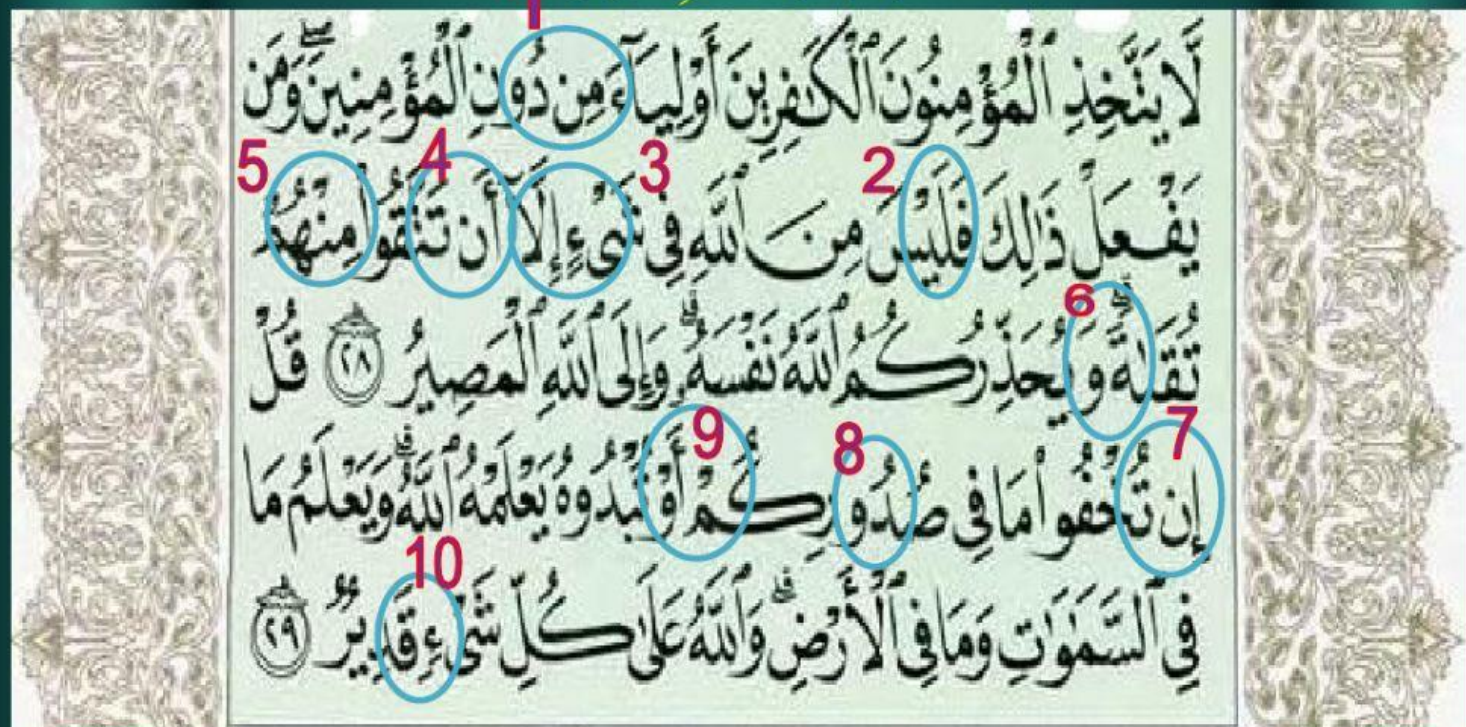 1
لَّا يَتَّخِذِ ٱلْمُؤْمِنُونَ ٱلْكَٰفِرِينَ أَوْلِيَآءَ مِن دُونِ ٱلْمُؤْمِنِينَۖ وَمَن
2 3 4 5
يَفْعَلْ ذَٰلِكَ فَلَيْسَ مِنَ ٱللَّهِ فِى شَىْءٍ إِلَّآ أَن تَتَّقُوا۟ مِنْهُمْ
6
تُقَىٰةًۗ وَيُحَذِّرُكُمُ ٱللَّهُ نَفْسَهُۥۗ وَإِلَى ٱللَّهِ ٱلْمَصِيرُ ٢٨ قُلْ
7 8 9
إِن تُخْفُوا۟ مَا فِى صُدُورِكُمْ أَوْ تُبْدُوهُ يَعْلَمْهُ ٱللَّهُۗ وَيَعْلَمُ مَا
10
فِى ٱلسَّمَٰوَٰتِ وَمَا فِى ٱلْأَرْضِۗ وَٱللَّهُ عَلَىٰ كُلِّ شَىْءٍ قَدِيرٌ ٢٩